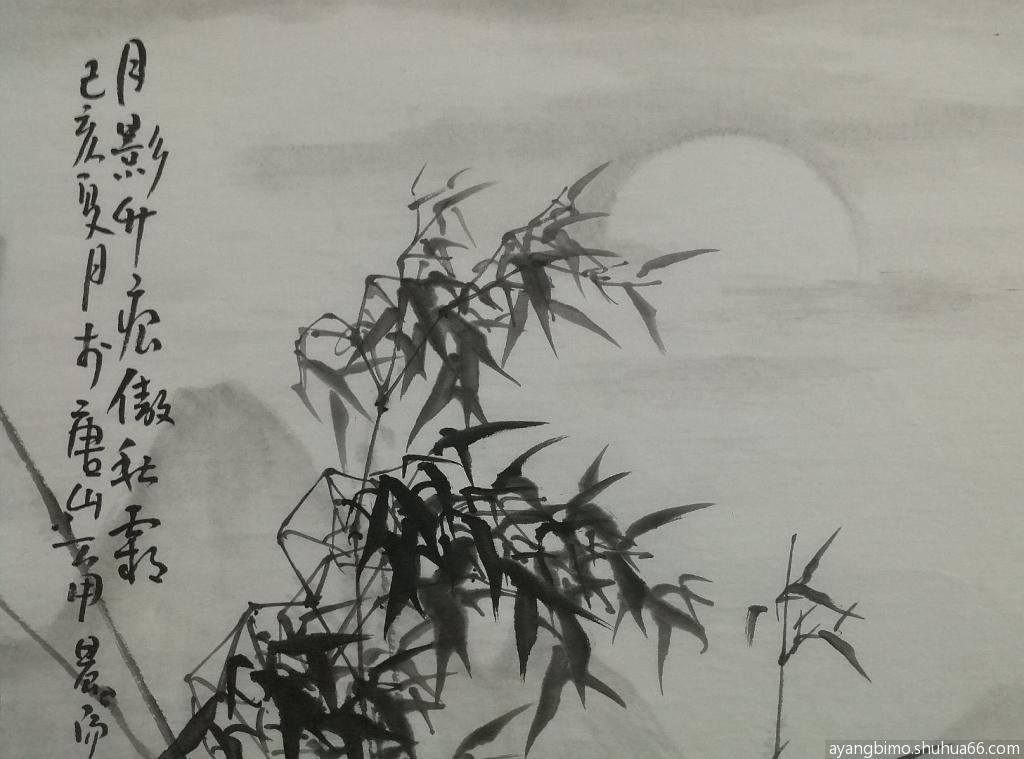 月影竹痕傲秋霜
己亥夏月於唐山
ayangbimo.shuhua66.com